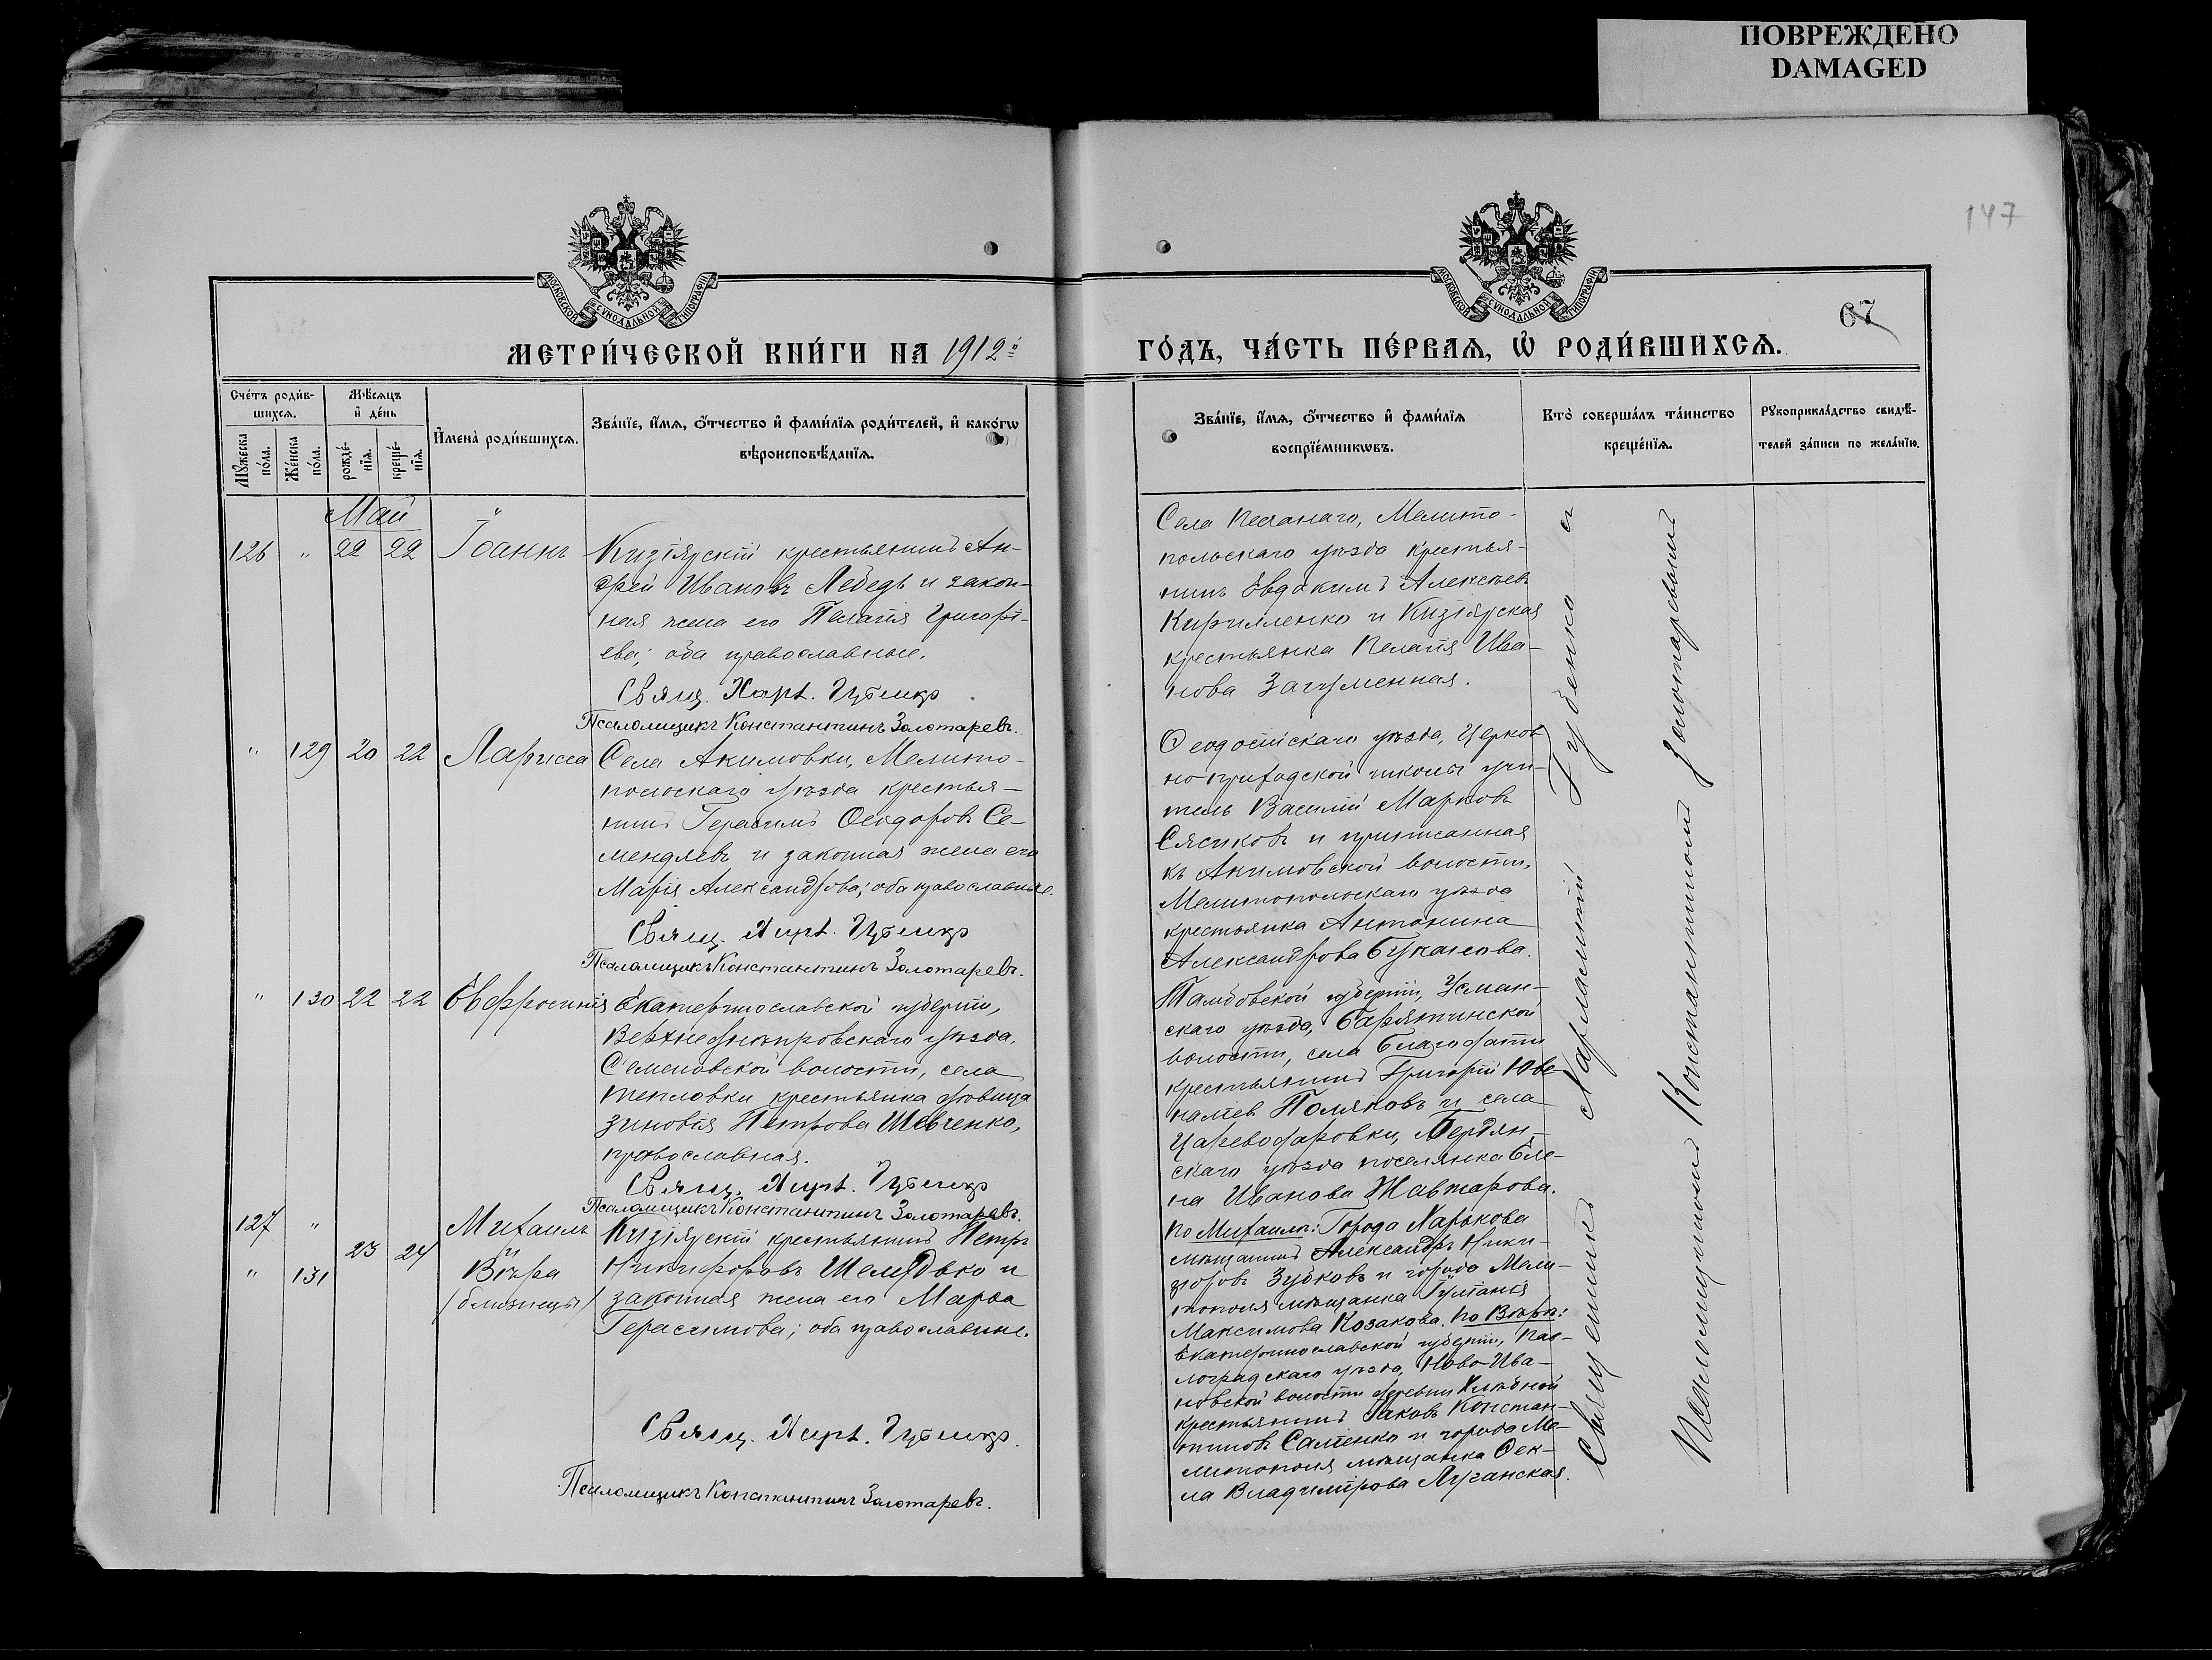 ПОВРЕЖДЕНО
DAMAGED
147
67
МОСКОВСКОЙ СѴНОДАЛЬНОЙ ТИПОГРАФІИ
МОСКОВСКОЙ СѴНОДАЛЬНОЙ ТИПОГРАФІИ
МЕТРИ́ЧЕСКОЙ КНИ́ГИ НА 1912й
ГО́ДЪ, ЧА́СТЬ ПЕ́РВАЯ, Ѡ РОДИ́ВШИХСЯ.
Сче́тъ роди́в-
шихся.
Мѣ́сяцъ
и де́нь
Му́жеска по́ла.
Же́нска по́ла.
рожде́-
нія.
креще́-
нія.
Имена̀ роди́вшихся.
Зва́ніе, и́мя, о́тчество и фами́лія роди́телей, и како́гѡ
вѣроисповѣ́данія.
Зва́ніе, и́мя, о́тчество и фами́лія
воспріе́мникѡвъ.
Кто̀ соверша́лъ та́инство
креще́нія.
Рукоприкла́дство свидѣ́-
телей за́писи по жела́нію.
Май
126 " 22 22 Іоаннъ
Кизіярскій крестьянинъ Ан-
дрей Ивановъ Лебедь и закон-
ная жена его Пелагія Григорі-
ева; оба православные.
Свящ. Харл. Губенко
Псаломщикъ Константинъ Золотаревъ.
Села Песчанаго, Мелито-
польскаго уѣзда крестья-
нинъ Евдокимъ Алексѣевъ
Кириленко и Кизіярская
крестьянка Пелагія Ива-
нова Загуменная.
" 129 20 22 Ларисса
Села Акимовки, Мелито-
польскаго уѣзда крестья-
нинъ Герасимъ Ѳеодоровъ Се-
мендяевъ и законная жена его
Марія Александрова; оба православные.
Свящ. Харл. Губенко
Псаломщикъ Константинъ Золотаревъ.
Ѳеодосійскаго уѣзда, Церков
но-приходской школы учи-
тель Василій Марковъ
Сясиковъ и приписанная
къ Акимовской волости,
Мелитопольскаго уѣзда
крестьянка Антонина
Александрова Буканова.
" 130 22 22 Евфросинія
Екатеринославской губерніи,
Верхнеднѣпровскаго уѣзда,
Семеновской волости, села
Тепловки крестьянка дѣвица
Зиновія Петрова Шевченко,
православная.
Свящ. Харл. Губенко
Псаломщикъ Константинъ Золотаревъ.
Тамбовской губерніи, Усман-
скаго уѣзда, Барятинской
волости, села Благодати
крестьянинъ Григорій Юве-
налiев Поляковъ и села
Цареводаровки, Бердян-
скаго уѣзда поселянка Еле-
на Иванова Жавтарова.
127 " 23 24 Михаилъ
и
" 131 Вѣра
/близнецы/
Кизіярскій крестьянинъ Петръ
Никифоровъ Шелудько и
законная жена его Марѳа
Герасимова; оба православные.
Свящ. Харл. Губенко.
Псаломщикъ Константинъ Золотаревъ.
По Михаилѣ: Города Харькова
мѣщанинъ Александръ Ники-
форовъ Зубковъ и города Мели-
тополя мѣщанка Іуліанія
Максимова Козакова. По Вѣрѣ:
Екатеринославской губерніи, Пав-
лоградскаго уѣзда, Ново-Ива-
новской волости деревни Хлѣбной
крестьянинъ Іаковъ Констан-
тиновъ Саленко и города Ме-
литополя мѣщанка Ѳек-
ла Владимірова Луганская.
Священникъ Харлампій Губенко съ
Псаломщикомъ Константиномъ Золотаревымъ